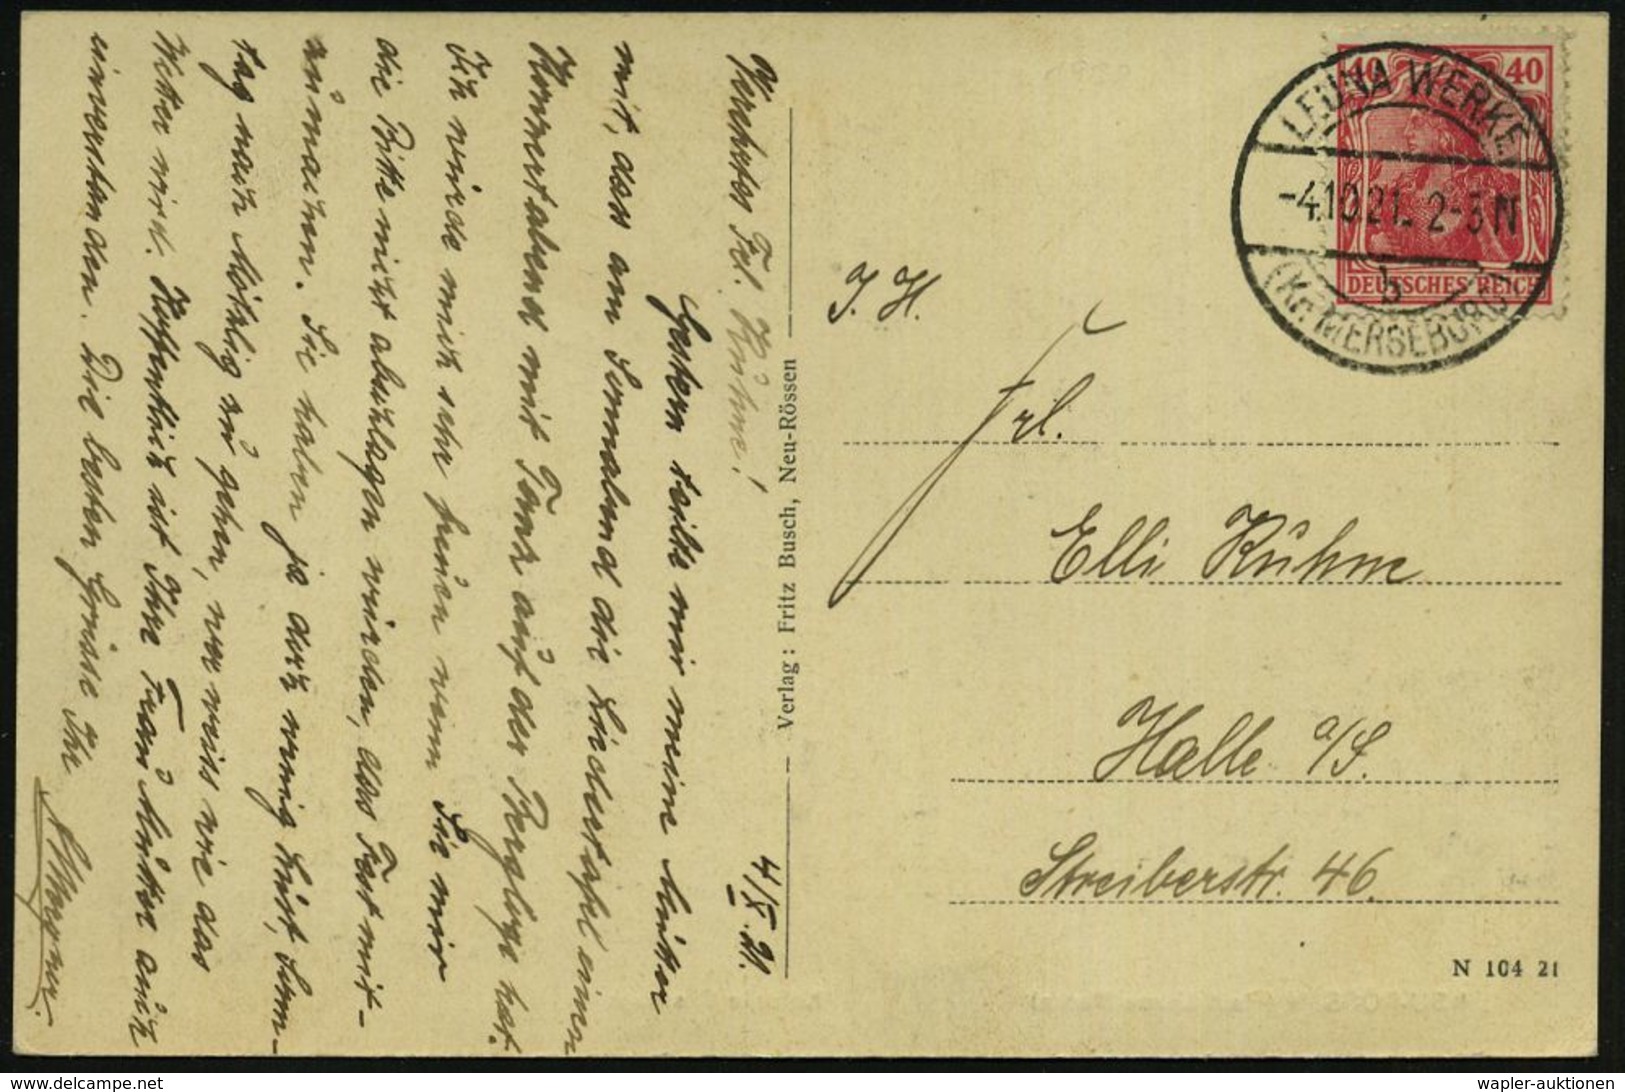 4/X. 21.
Wertes Frl. Kühne!
Gestern teilte mir meine Mutter
mit, das am Sonnabend die Liedertafel einen
Konzertabend mit Tanz auf der Bergloge hat.
Ich würde mich sehr freuen wenn Sie mir
die Bitte nicht abschlagen würden, das Fest mit-
zumachen. Sie haben ja doch wenig Lust, Sonn-
tag nach Möthlig zu gehen, wer weiss wie das
Wetter wird. Hoffentlich ist Ihre Frau Mutter auch
einverstanden. Die besten Grüsse Ihr
Verlag: Fritz Busch, Neu-Rössen
40 40
DEUTSCHES REICH
LEUNA WERKE
-4.10.21. 2-3 N
b
(KR. MERSEBURG)
I. H.
Frl.
Elli Kühne
Halle a/S.
Streiberstr. 46.
N 104 21
www.delcampe.net
wapler-auktionen